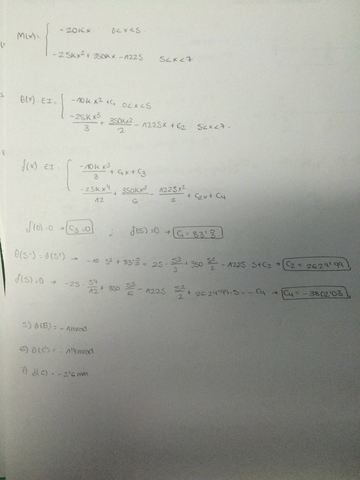 M(x) = { -20kx 0<x<5
-25kx² + 350kx - 1225 5<x<7
θ(x)·EI = { -10kx² + C₁ 0<x<5
-25kx³/3 + 350kx²/2 - 1225x + C₂ 5<x<7.
f(x)·EI = { -10kx³/3 + C₁x + C₃
-25kx⁴/12 + 350kx³/6 - 1225x²/2 + C₂x + C₄
f(0)=0 → C₃=0 ; f(5)=0 → C₁ = 83'3
θ(5⁻) = θ(5⁺) → -10 5² + 83'3 = 25· 5³/3 + 350 5²/2 - 1225 5 + C₂ → C₂ = 2624'99
f(5)=0 → -25 5⁴/12 + 350 5³/6 - 1225 5²/2 + 2624'99·5 = -C₄ → C₄ = -3802'03
= -1mrad
= -1'9mrad
= -2'6mm